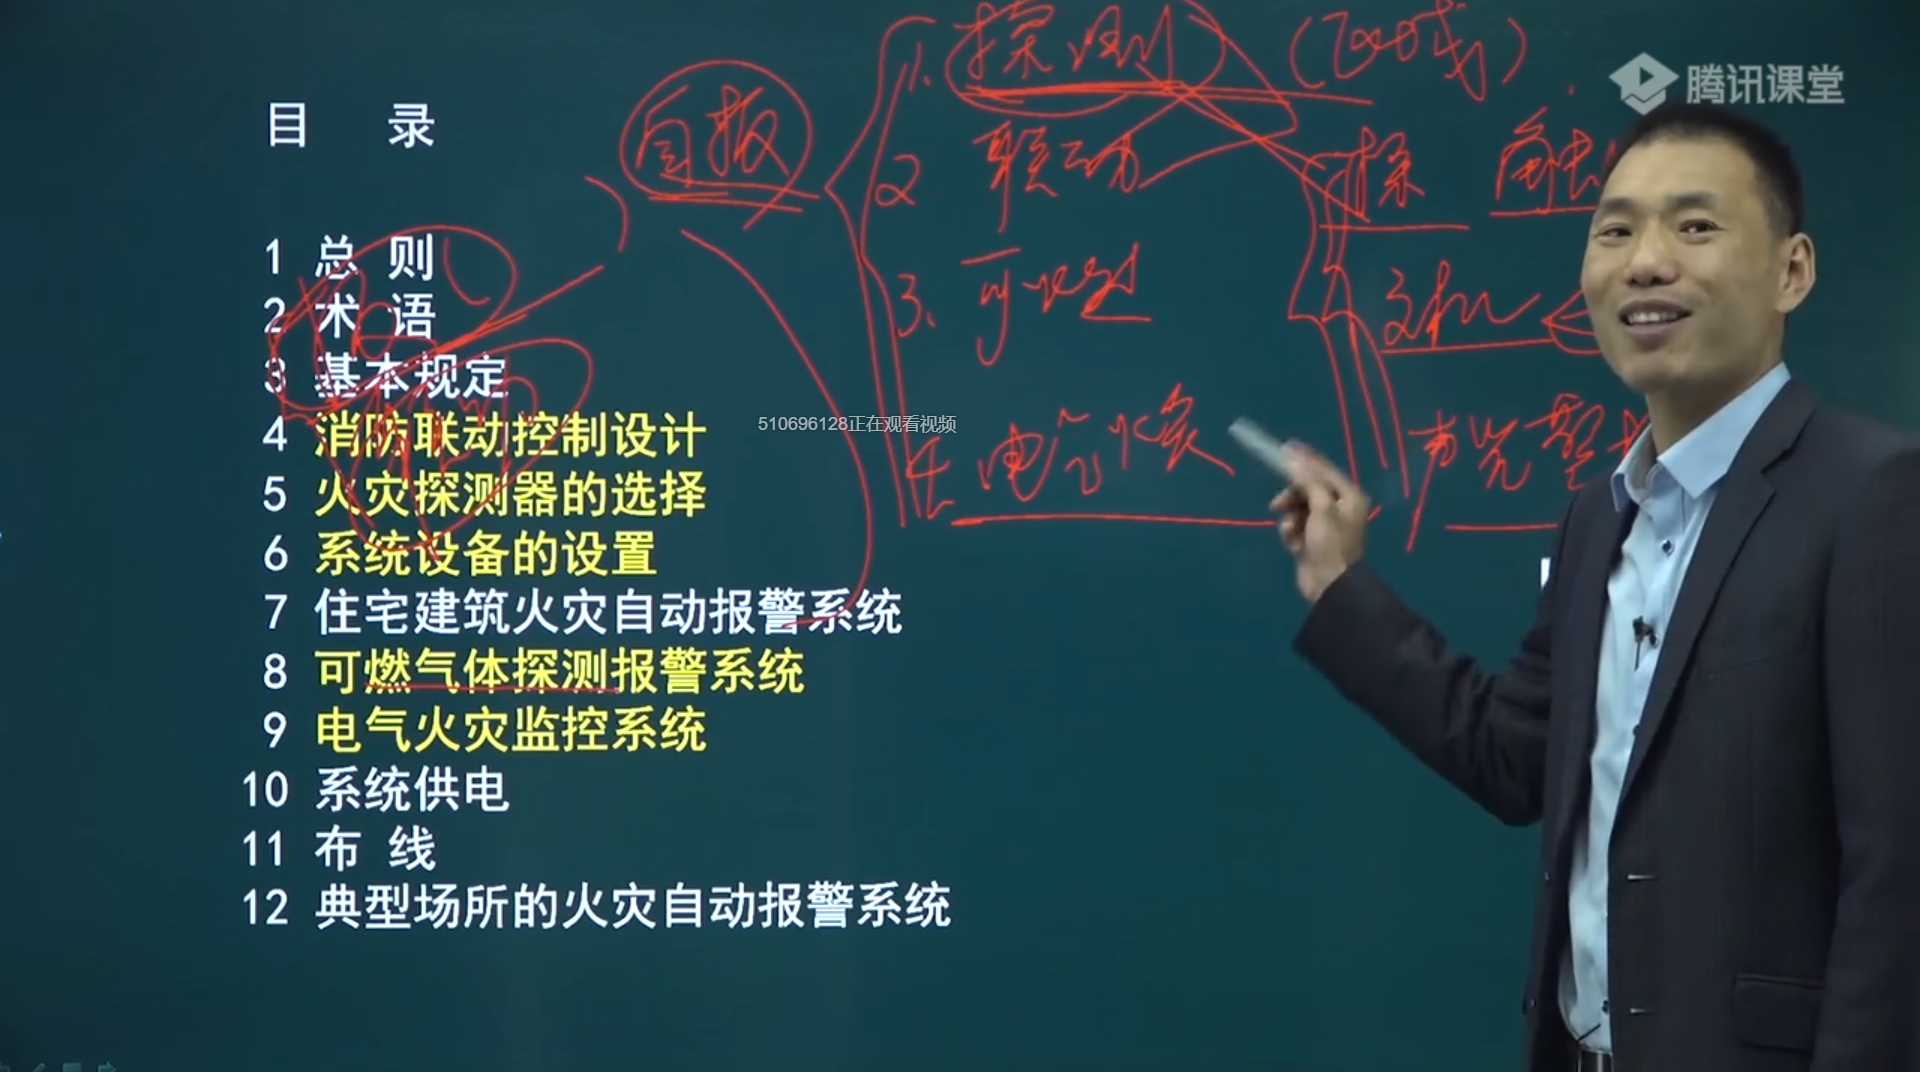 腾讯课堂
目 录
1 总 则
2 术 语
3 基本规定
4 消防联动控制设计
5 火灾探测器的选择
6 系统设备的设置
7 住宅建筑火灾自动报警系统
8 可燃气体探测报警系统
9 电气火灾监控系统
10 系统供电
11 布 线
12 典型场所的火灾自动报警系统
510696128正在观看视频
自报
1. 探测
2 联动
3、可燃
电气火灾
探
声光警